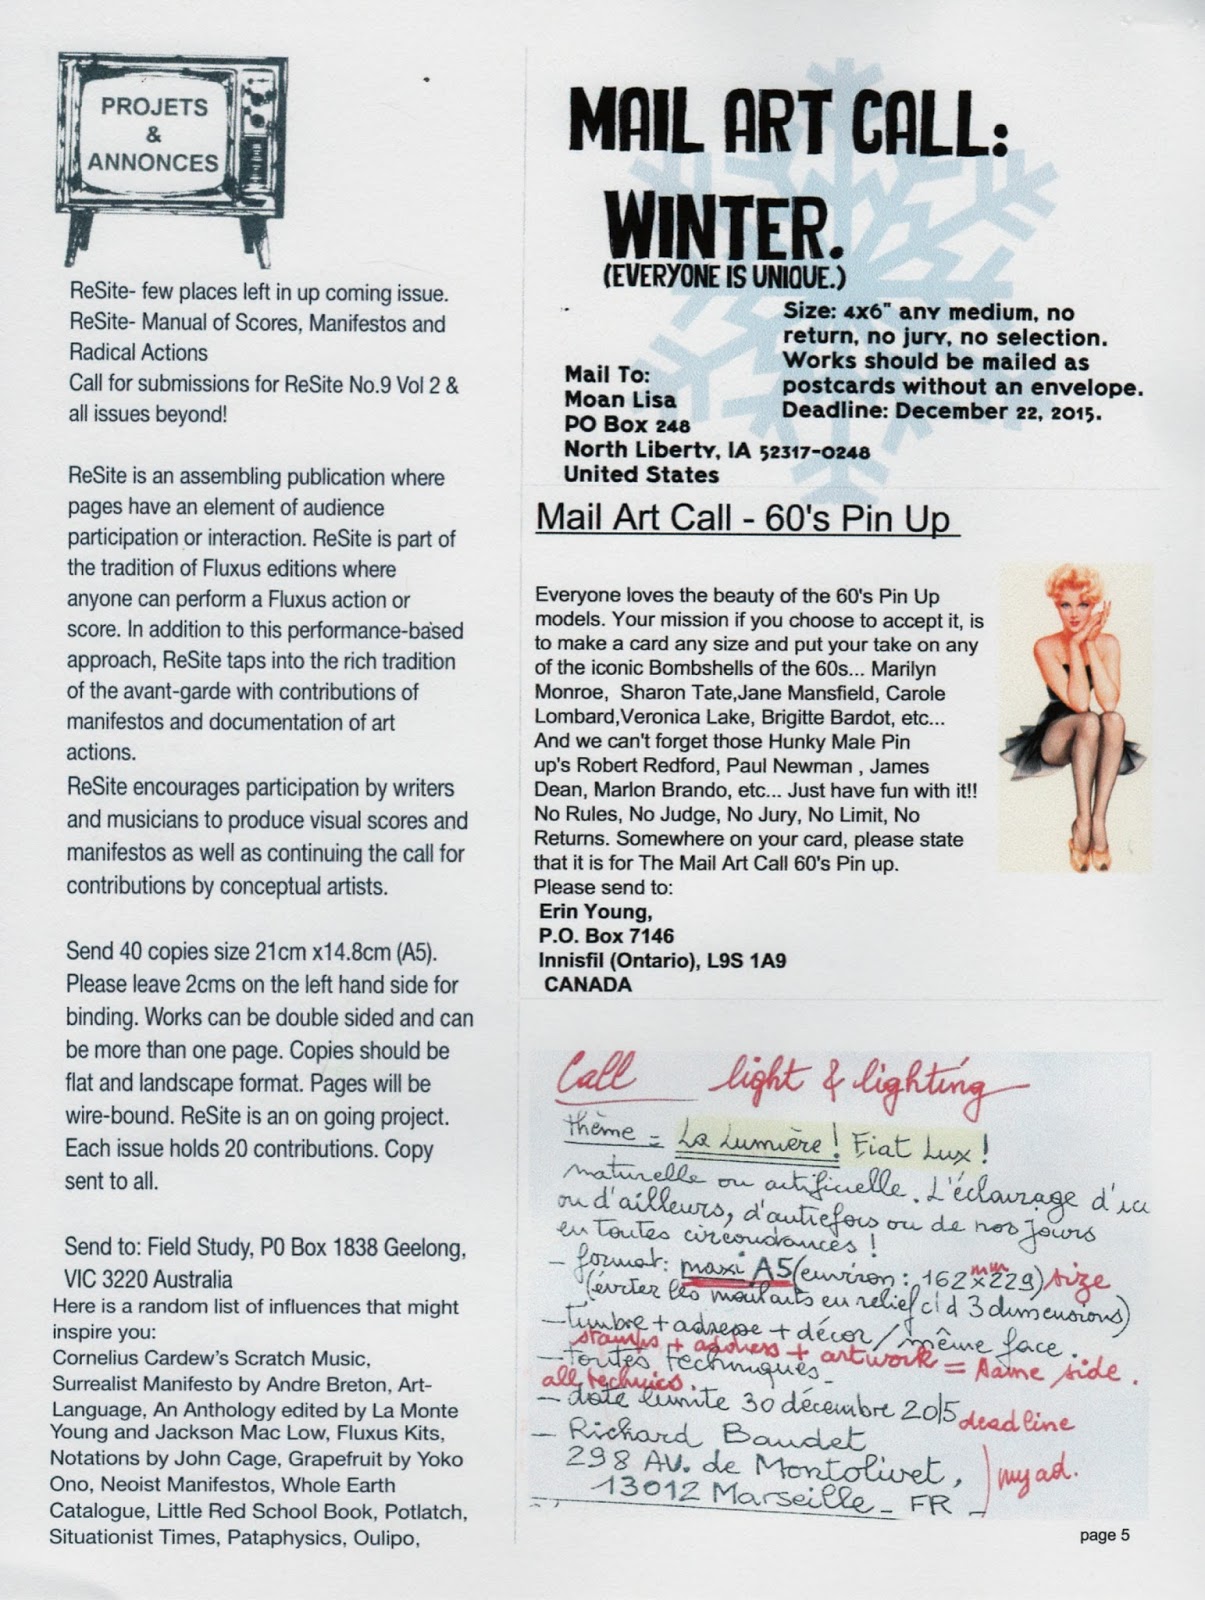 PROJETS
&
ANNONCES
ReSite- few places left in up coming issue.
ReSite- Manual of Scores, Manifestos and
Radical Actions
Call for submissions for ReSite No.9 Vol 2 &
all issues beyond!
ReSite is an assembling publication where
pages have an element of audience
participation or interaction. ReSite is part of
the tradition of Fluxus editions where
anyone can perform a Fluxus action or
score. In addition to this performance-based
approach, ReSite taps into the rich tradition
of the avant-garde with contributions of
manifestos and documentation of art
actions.
ReSite encourages participation by writers
and musicians to produce visual scores and
manifestos as well as continuing the call for
contributions by conceptual artists.
Send 40 copies size 21cm x14.8cm (A5).
Please leave 2cms on the left hand side for
binding. Works can be double sided and can
be more than one page. Copies should be
flat and landscape format. Pages will be
wire-bound. ReSite is an on going project.
Each issue holds 20 contributions. Copy
sent to all.
Send to: Field Study, PO Box 1838 Geelong,
VIC 3220 Australia
Here is a random list of influences that might
inspire you:
Cornelius Cardew's Scratch Music,
Surrealist Manifesto by Andre Breton, Art-
Language, An Anthology edited by La Monte
Young and Jackson Mac Low, Fluxus Kits,
Notations by John Cage, Grapefruit by Yoko
Ono, Neoist Manifestos, Whole Earth
Catalogue, Little Red School Book, Potlatch,
Situationist Times, Pataphysics, Oulipo,
MAIL ART CALL:
WINTER.
(EVERYONE IS UNIQUE.)
Size: 4x6" any medium, no
return, no jury, no selection.
Works should be mailed as
postcards without an envelope.
Deadline: December 22, 2015.
Mail To:
Moan Lisa
PO Box 248
North Liberty, IA 52317-0248
United States
Mail Art Call - 60's Pin Up
Everyone loves the beauty of the 60's Pin Up
models. Your mission if you choose to accept it, is
to make a card any size and put your take on any
of the iconic Bombshells of the 60s... Marilyn
Monroe, Sharon Tate,Jane Mansfield, Carole
Lombard,Veronica Lake, Brigitte Bardot, etc...
And we can't forget those Hunky Male Pin
up's Robert Redford, Paul Newman , James
Dean, Marlon Brando, etc... Just have fun with it!!
No Rules, No Judge, No Jury, No Limit, No
Returns. Somewhere on your card, please state
that it is for The Mail Art Call 60's Pin up.
Please send to:
Erin Young,
P.O. Box 7146
Innisfil (Ontario), L9S 1A9
CANADA
Call light & lighting
thème = La Lumière! Fiat Lux!
naturelle ou artificielle. L'éclairage d'ici
ou d'ailleurs, d'autrefois ou de nos jours
en toutes circonstances!
- format: maxi A5 (environ: 162 x 229) mm size
(éviter les montants en relief càd 3 dimensions)
- timbre + adresse + décor / même face.
stamps + address + artwork = same side.
- toutes techniques -
all technics.
- date limite 30 décembre 2015 deadline
- Richard Baudet
298 AV. de Montolivet,
13012 Marseille - FR -
my ad.
page 5